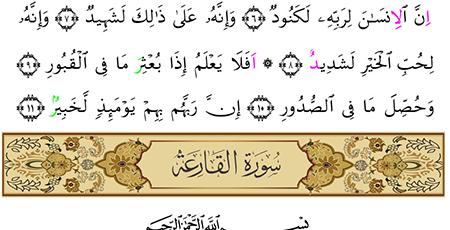 اِنَّ الْاِنْسَـٰنَ لِرَبِّهِۦ لَكَنُودٌ ﴿٦﴾ وَاِنَّهُۥ عَلَىٰ ذَٰلِكَ لَشَهِيدٌ ﴿٧﴾ وَاِنَّهُۥ
لِحُبِّ الْخَيْرِ لَشَدِيدٌ ﴿٨﴾ ۞ اَفَلَا يَعْلَمُ اِذَا بُعْثِرَ مَا فِى الْقُبُورِ ﴿٩﴾
وَحُصِّلَ مَا فِى الصُّدُورِ ﴿١٠﴾ اِنَّ رَبَّهُم بِهِمْ يَوْمَئِذٍ لَّخَبِيرٌ ﴿١١﴾
سُورَةُ الْقَارِعَةِ
بِسْمِ اللَّهِ الرَّحْمَٰنِ الرَّحِيمِ